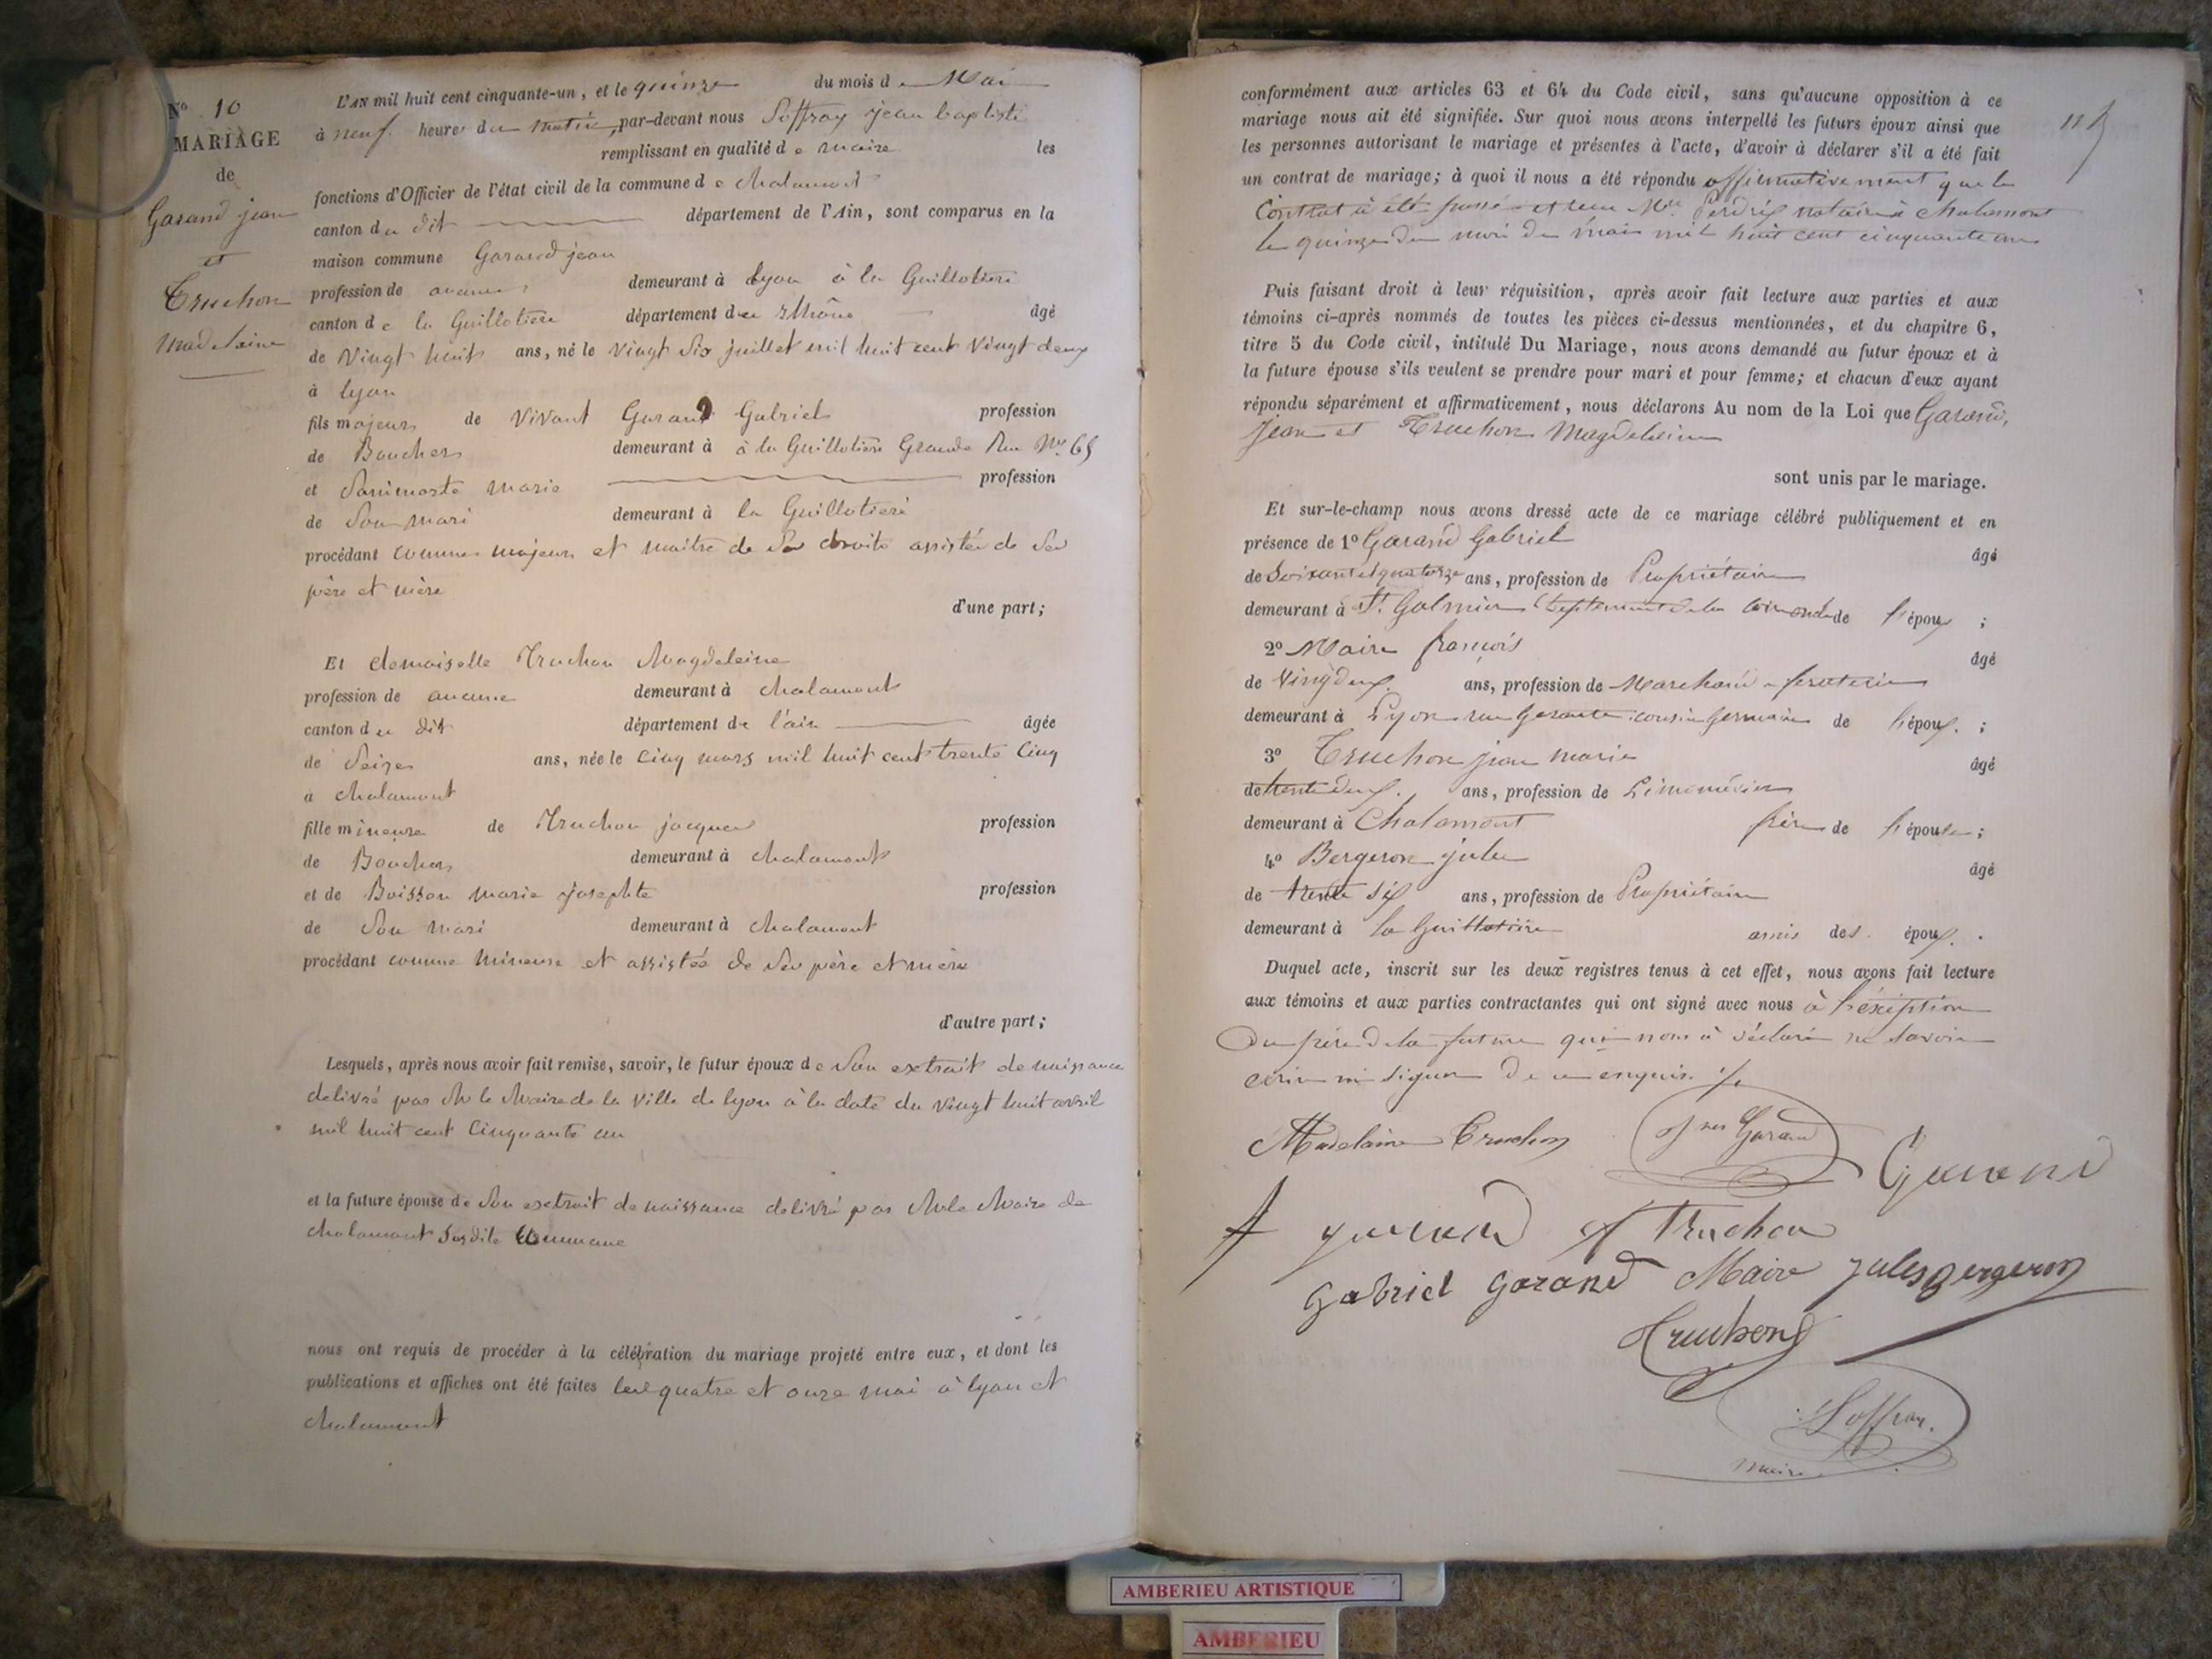 N° 10
MARIAGE
de
Garand jean
et
Truchon
Madelaine
L'AN mil huit cent cinquante-un, et le quinze du mois de Mai
à neuf heures du matin, par-devant nous Soffray jean baptiste
remplissant en qualité de maire les
fonctions d'Officier de l'état civil de la commune de chalamont
canton du dit département de l'Ain, sont comparus en la
maison commune Garand jean
profession de aucune demeurant à Lyon à la Guillotiere
canton de la Guillotiere département du Rhône âgé
de Vingt huit ans, né le Vingt Six juillet mil huit cent Vingt deux
à lyon
fils majeur de Vivant Garand Gabriel profession
de Boucher demeurant à à la Guillotière Grande Rue
et marie profession
de Son mari demeurant à la Guillotiere
procédant comme majeur et maitre de Ses droits assistée de Ses
père et mère
d'une part;
Et demoiselle Truchon Magdeleine
profession de aucune demeurant à chalamont
canton du dit département de l'ain âgée
de Seize ans, née le Cinq mars mil huit cent trente Cinq
à chalamont
fille mineure de Truchon jacques profession
de Boucher demeurant à chalamont
et de Boisson marie josephte profession
de Son mari demeurant à chalamont
procédant comme mineure et assistée de Ses père et mère
d'autre part;
Lesquels, après nous avoir fait remise, savoir, le futur époux de Son extrait de naissance
delivré par Mr le Maire de la Ville de lyon à la date du Vingt huit avril
mil huit cent Cinquante un
et la future épouse de Son extrait de naissance delivré par Mr le Maire de
chalamont Susdite Commune
nous ont requis de procéder à la célébration du mariage projeté entre eux, et dont les
publications et affiches ont été faites les quatre et onze mai à lyon et
chalamont
conformément aux articles 63 et 64 du Code civil, sans qu'aucune opposition à ce
mariage nous ait été signifiée. Sur quoi nous avons interpellé les futurs époux ainsi que
les personnes autorisant le mariage et présentes à l'acte, d'avoir à déclarer s'il a été fait
un contrat de mariage; à quoi il nous a été répondu affirmativement que le
Contrat à été passé notaire à chalamont
le quinze du mois de mai mil huit cent cinquante un
Puis faisant droit à leur réquisition, après avoir fait lecture aux parties et aux
témoins ci-après nommés de toutes les pièces ci-dessus mentionnées, et du chapitre 6,
titre 5 du Code civil, intitulé Du Mariage, nous avons demandé au futur époux et à
la future épouse s'ils veulent se prendre pour mari et pour femme; et chacun d'eux ayant
répondu séparément et affirmativement, nous déclarons Au nom de la Loi que Garand,
Jean et Truchon Magdeleine
sont unis par le mariage.
Et sur-le-champ nous avons dressé acte de ce mariage célébré publiquement et en
présence de 1° Garand Gabriel âgé
de Soixante quatorze ans, profession de Propriétaire
demeurant à St. Galmier de l'époux;
2° Maire françois âgé
de Vingdeux ans, profession de Marchand
demeurant à Lyon rue cousin germain de l'époux;
3° Truchon jean marie âgé
de trente deux ans, profession de Limonadier
demeurant à Chalamont frère de l'épouse;
4° Bergeron jules âgé
de trente six ans, profession de Propriétaire
demeurant à la Guillotière amis des époux.
Duquel acte, inscrit sur les deux registres tenus à cet effet, nous avons fait lecture
aux témoins et aux parties contractantes qui ont signé avec nous à l'exception
du père de la future qui nous à déclaré ne savoir
écrire ni signer de ce enquis
Madelaine Truchon Garand
Garand
Garand Truchon
Gabriel Garand Maire Jules Bergeron
Truchon
Soffray
maire
AMBERIEU ARTISTIQUE
AMBERIEU